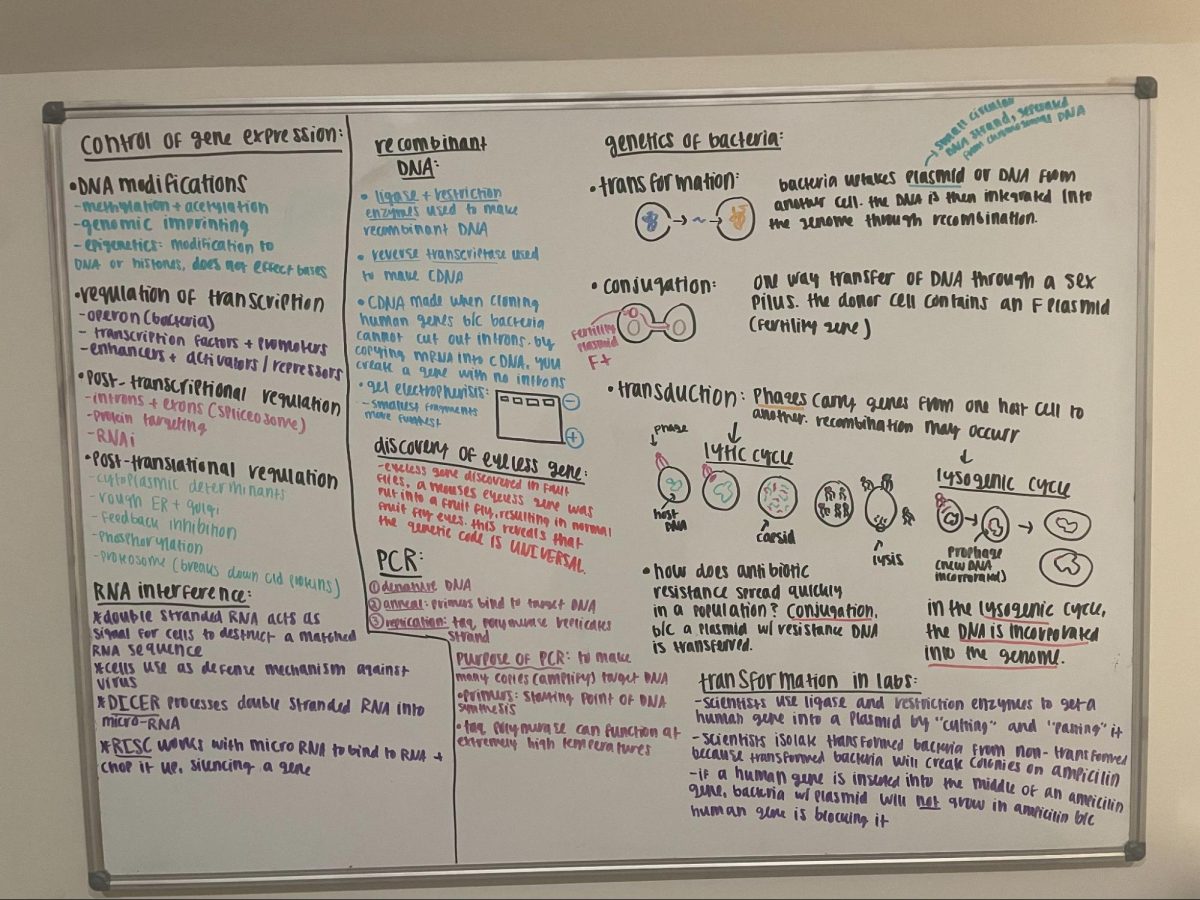 Control of gene expression:
•DNA modifications
-methylation + acetylation
-genomic imprinting
-epigenetics: modification to
DNA or histones, does not effect bases
•regulation of transcription
-operon (bacteria)
- transcription factors + promoters
-enhancers + activators / repressors
•Post-transcriptional regulation
-introns + exons (spliceosome)
-protein targeting
-RNAi
•Post-translational regulation
-cytoplasmic determinants
-rough ER + golgi
-feedback inhibition
-phosphorylation
-proteosome (breaks down old proteins)
RNA interference:
*double stranded RNA acts as
signal for cells to destruct a matched
RNA sequence
*cells use as defense mechanism against
virus
*DICER processes double stranded RNA into
micro-RNA
*RISC works with micro RNA to bind to RNA +
chop it up, silencing a gene
recombinant
DNA:
• ligase + restriction
enzymes used to make
recombinant DNA
• reverse transcriptase used
to make CDNA
•CDNA made when cloning
human genes b/c bacteria
cannot cut out introns. by
copying mRNA into CDNA, you
create a gene with no introns
•gel electrophorisis:
-smallest fragments
move furthest
−
+
discovery of eyeless gene:
-eyeless gene discovered in fruit
flies. a mouses eyeless gene was
put into a fruit fly, resulting in normal
fruit fly eyes. this reveals that
the genetic code is UNIVERSAL.
PCR:
① denature DNA
② anneal: primers bind to target DNA
③ replication: taq polymerase replicates
strand
Purpose of PCR: to make
many copies (amplify) target DNA
•primers: starting point of DNA
synthesis
•taq polymerase can function at
extremely high temperatures
genetics of bacteria:
→small circular
DNA strand, separated
from chromosomal DNA
•transformation:
bacteria uptakes plasmid or DNA from
another cell. the DNA is then integrated into
the genome through recombination.
• conjugation:
fertility
plasmid
F+
one way transfer of DNA through a sex
pilus. the donor cell contains an F plasmid
(fertility gene)
•transduction: Phages carry genes from one host cell to
another. recombination may occur
lytic cycle
phage
host
DNA
capsid
lysis
lysogenic cycle
prophage
(new DNA
incorporated)
•how does antibiotic
resistance spread quickly
in a population? Conjugation,
b/c a plasmid w/ resistance DNA
is transferred.
in the lysogenic cycle,
the DNA is incorporated
into the genome.
transformation in labs:
-scientists use ligase and restriction enzymes to get a
human gene into a plasmid by "cutting" and "pasting" it
-scientists isolate transformed bacteria from non-transformed
because transformed bacteria will create colonies on ampicilin
-if a human gene is inserted into the middle of an ampicilin
gene, bacteria w/ plasmid will not grow in ampicilin b/c
human gene is blocking it